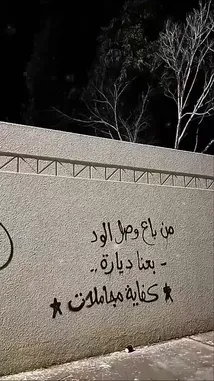 من باع وصل الود
- بعنا ديارة ..
★ كفاية مجاملات ★